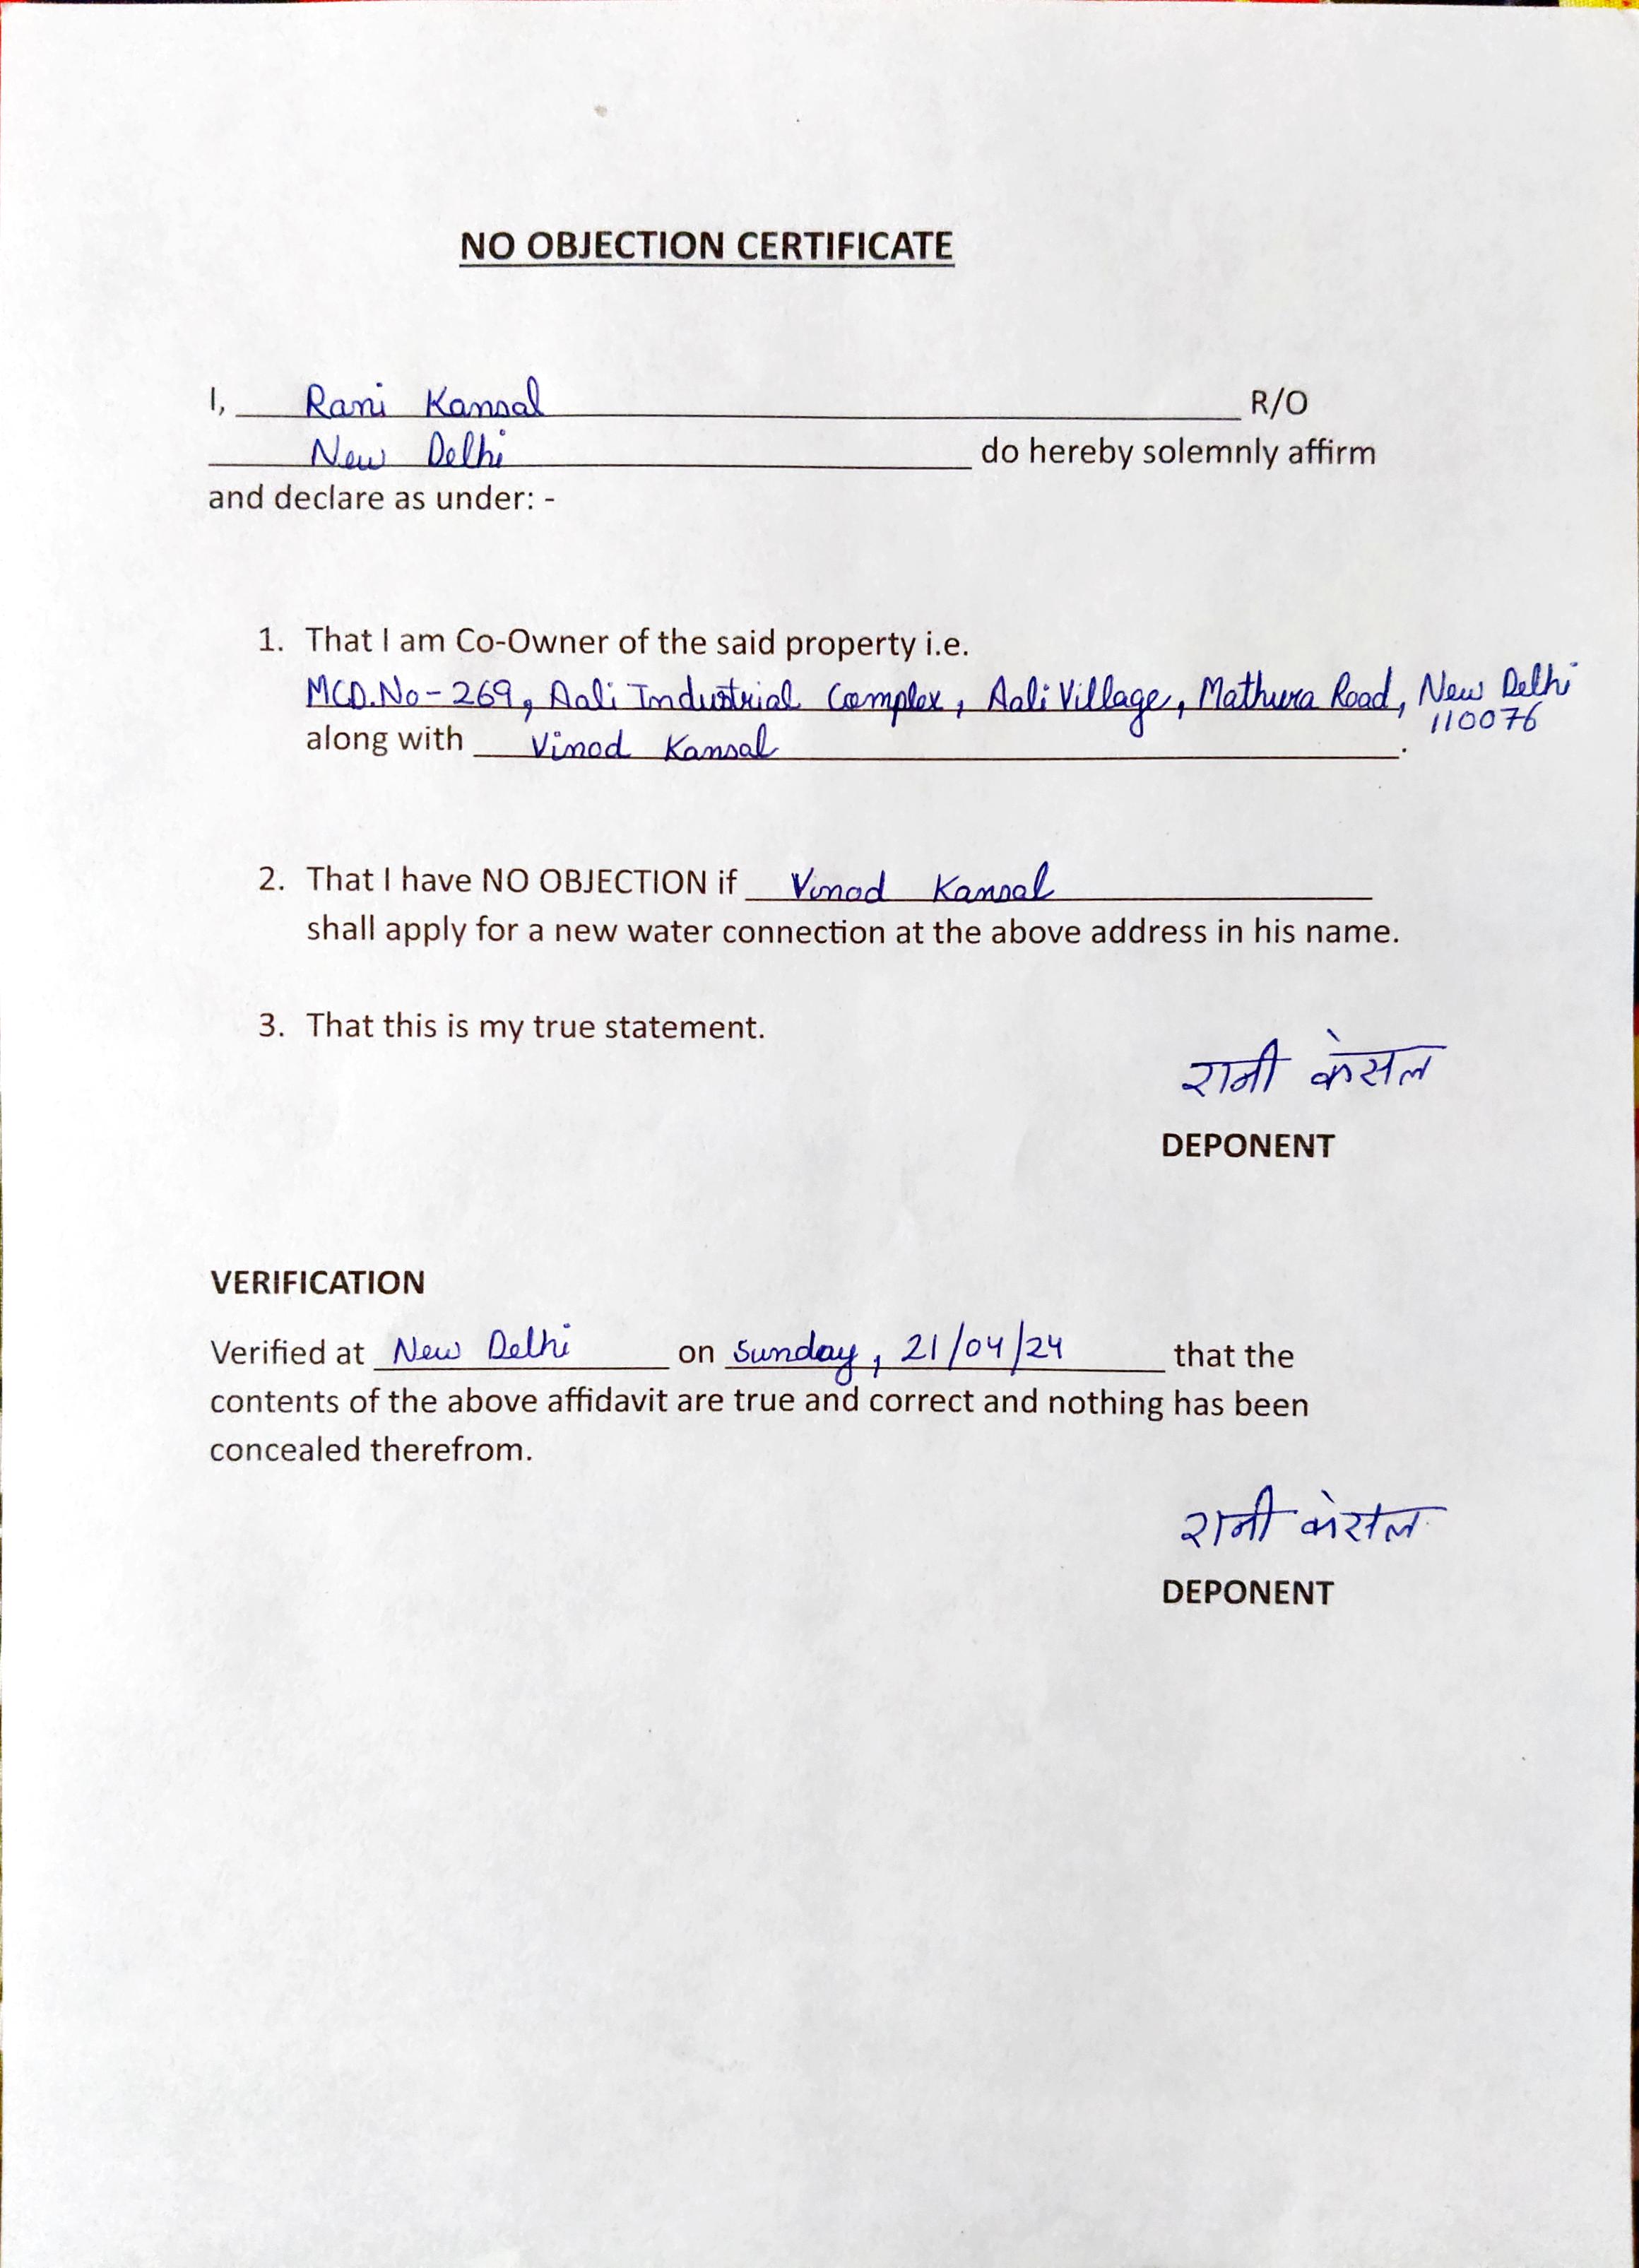 NO OBJECTION CERTIFICATE
I, Rani Kansal R/O
New Delhi do hereby solemnly affirm
and declare as under: -
1. That I am Co-Owner of the said property i.e.
MCD.No-269, Aali Industrial Complex, Aali Village, Mathura Road, New Delhi
110076
along with Vinod Kansal .
2. That I have NO OBJECTION if Vinod Kansal
shall apply for a new water connection at the above address in his name.
3. That this is my true statement.
रानी कंसल
DEPONENT
VERIFICATION
Verified at New Delhi on Sunday, 21/04/24 that the
contents of the above affidavit are true and correct and nothing has been
concealed therefrom.
रानी कंसल
DEPONENT